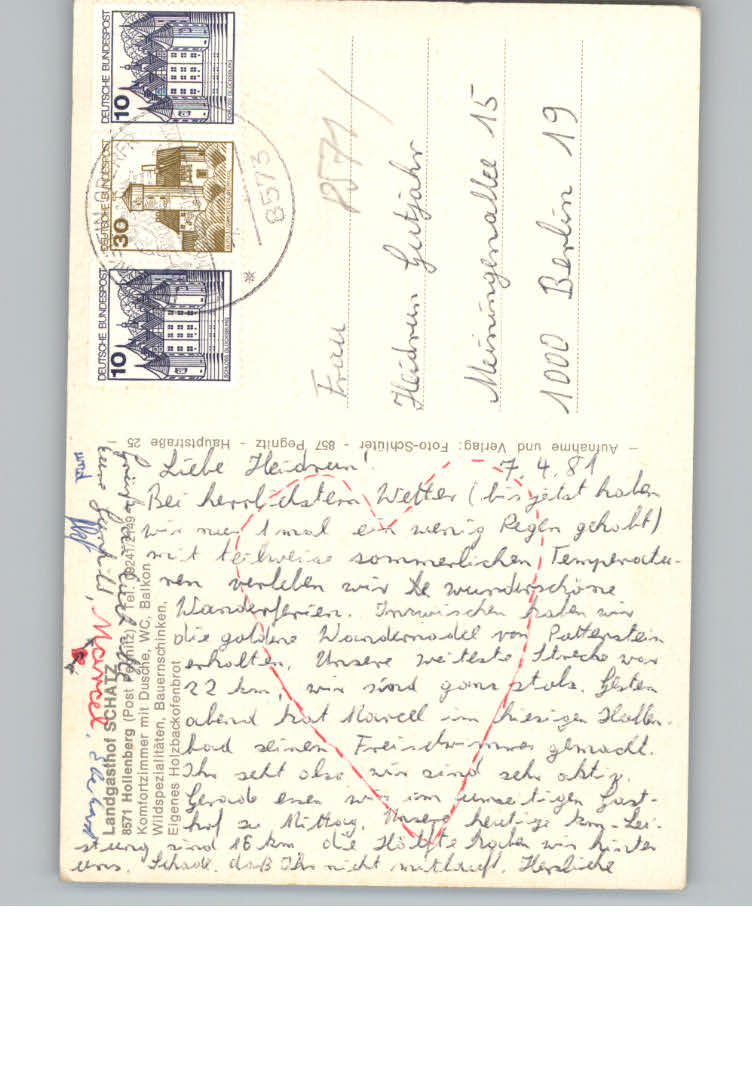 Liebe Heidrun! 7.4.81
Bei herrlichstem Wetter (bis jetzt haben
wir nur 1 mal ein wenig Regen gehabt)
mit teilweise sommerlichen Temperatu-
ren verleben wir wunderschöne
Wanderferien. Inzwischen haben wir
die goldene Wandernadel von Pottenstein
erhalten. Unsere weiteste Strecke war
22 km, wir sind ganz stolz. Gestern
abend hat Marcel im hiesigen Hallen-
bad seinen Freischwimmer gemacht.
Ihr seht also wir sind sehr aktiv.
Gerade essen wir im umseitigen Gast-
hof zu Mittag. Unsere heutige km-Lei-
stung sind 16 km, die Hälfte haben wir hinter
uns. Schade, daß Ihr nicht mitlauft. Herzliche
Grüße an
eure Marcel,
und
Landgasthof SCHATZ
8571 Hollenberg (Post Pegnitz) Tel. 09241/2149
Komfortzimmer mit Dusche, WC, Balkon
Wildspezialitäten, Bauernschinken,
Eigenes Holzbackofenbrot
– Aufnahme und Verlag: Foto-Schlüter - 857 Pegnitz - Hauptstraße 25 –
DEUTSCHE BUNDESPOST
10
SCHLOSS GLÜCKSBURG
DEUTSCHE BUNDESPOST
30
DEUTSCHE BUNDESPOST
10
SCHLOSS GLÜCKSBURG
8573
8571
Frau
Heidrun Gutjahr
Meiningenallee 15
1000 Berlin 19